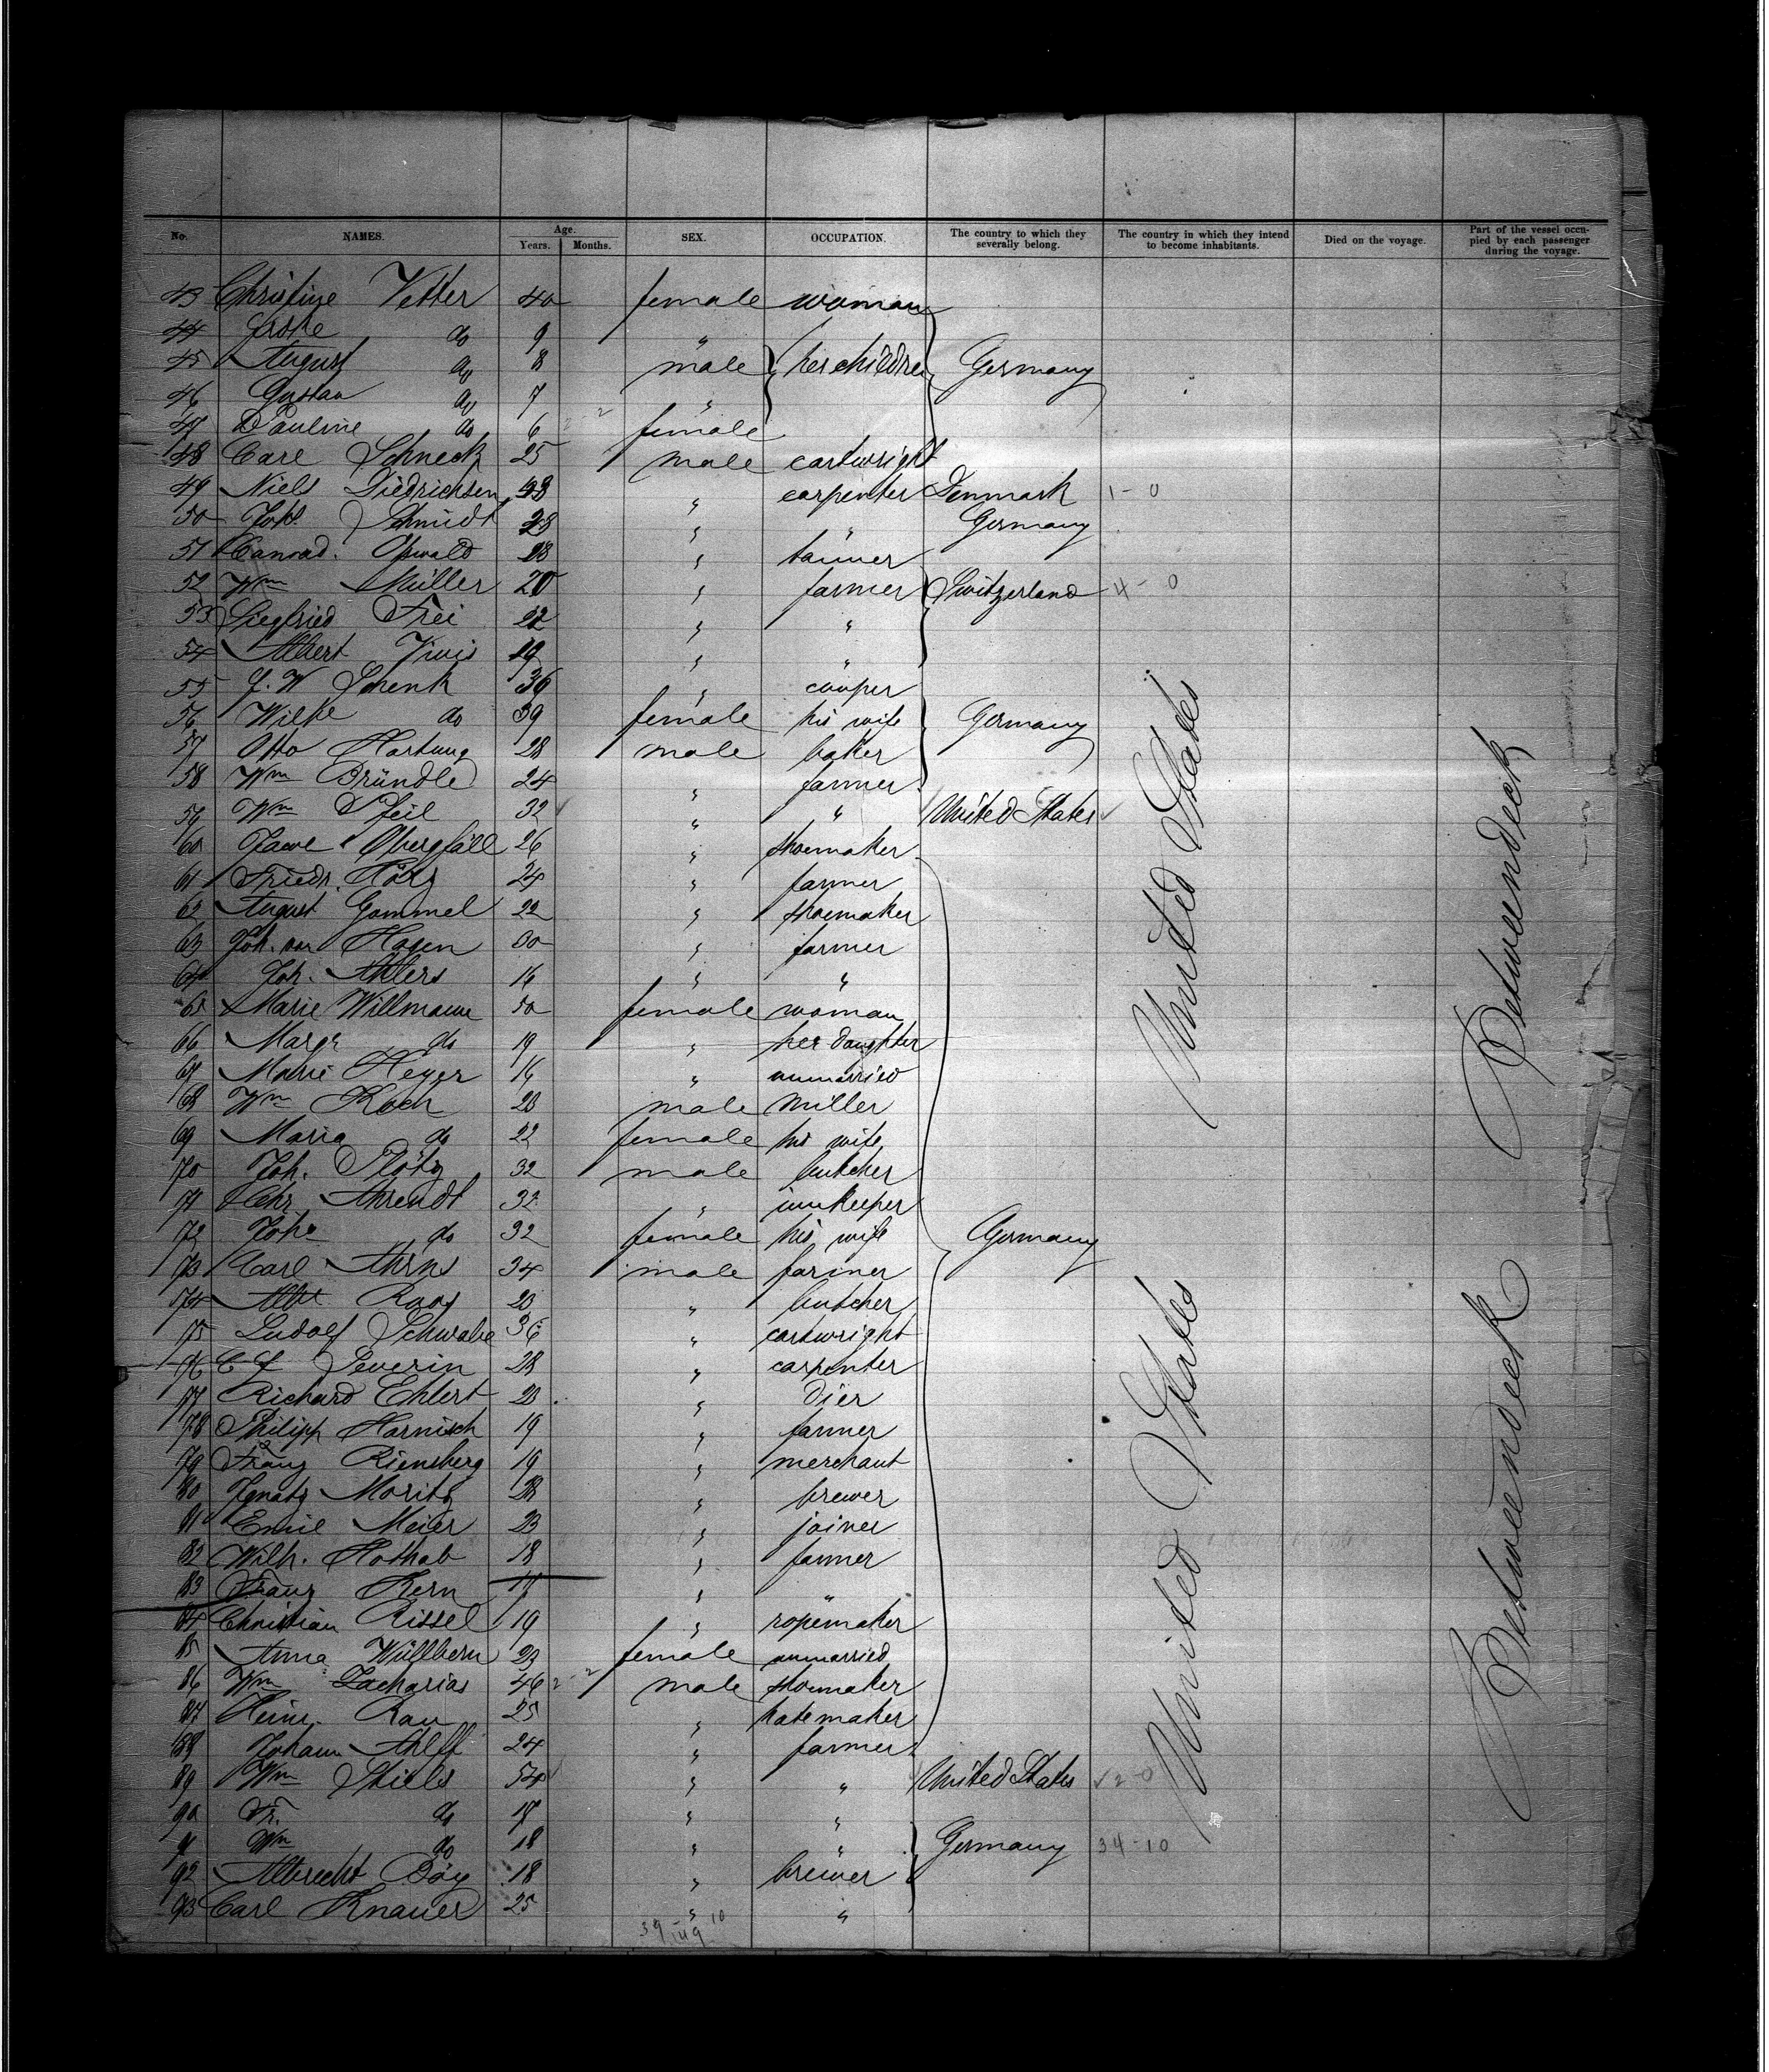 No. NAMES. Age. Years. Months. SEX. OCCUPATION. The country to which they severally belong. The country in which they intend to become inhabitants. Died on the voyage. Part of the vessel occupied by each passenger during the voyage.
43 Christine Vetter 40 female woman
44 do 9 "
45 August do 8 male her children Germany
46 Gustav do 7 "
47 Pauline do 6 female
48 Carl Schneck 25 male cartwright
49 Niels Diedrichsen 43 " carpenter Denmark 1-0
50 Joh. Schmidt 28 " " Germany
51 Conrad. Oswald 28 " tanner
52 Wm Müller 20 " farmer Switzerland 4-0
53 Siegfried Frei 22 " "
54 Albert 19 " "
55 J. W Schenk 36 " cooper
56 Wilke do 39 female his wife Germany
57 Otto Hartung 28 male baker
58 Wm Bründle 24 " farmer
59 Wm Pfeil 32 " " United States
60 Obergfäll 26 " shoemaker
61 Friedr. 24 " farmer
62 August Gommel 22 " shoemaker
63 Joh. von Hagen 30 " farmer
64 Joh. Ahlers 16 " "
65 Marie Willmann 50 female woman
66 Margr do 19 " her daughter
67 Marie Heyer 16 " unmarried
68 Wm Koch 28 male miller
69 Maria do 22 female his wife
70 Joh. Plötz 32 male butcher
71 Chr. Ahrendt 32 " innkeeper
72 Johe do 32 female his wife Germany
73 Carl Ahrns 34 male farmer
74 Albt. Roos 20 " butcher
75 Ludolf Schwabe 36 " cartwright
76 C. F. Severin 28 " carpenter
77 Richard Ehlert 20 " dier
78 Philipp Harnisch 19 " farmer
79 Franz Riensberg 19 " merchant
80 Ignatz Moritz 28 " brewer
81 Emil Meier 23 " joiner
82 Wilh. Hothab 18 " farmer
83 Franz Kern 17 " "
84 Christian Rissel 19 " ropemaker
85 Anna Wüllbern 23 female unmarried
86 Wm Zacharias 46 male shoemaker
87 Heinr. Rau 25 " hatemaker
88 Johann Ahlff 24 " farmer
89 Wm Thiels 54 " " United States 2-0
90 Fr. do 17 " "
91 Wm do 18 " " Germany 34-10
92 Albrecht Böy 18 " brewer
93 Carl Knauer 25 " "
39 10
149
United States
United States
Betweendeck
Betweendeck